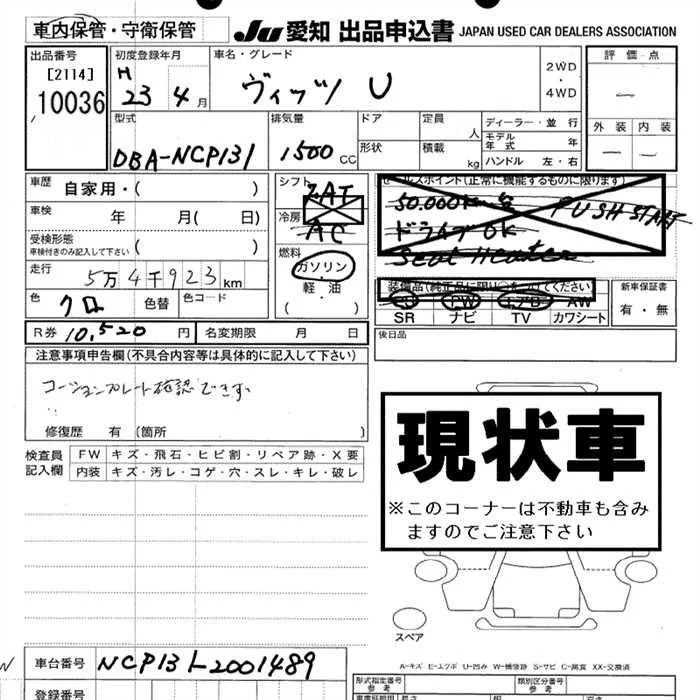 車内保管・守衛保管
JU 愛知 出品申込書 JAPAN USED CAR DEALERS ASSOCIATION
出品番号 初度登録年月 車名・グレード 2WD ・ 4WD 評価点
[2114]
10036
H 23年4月
ヴィッツ U
型式 排気量 ドア 定員 人 ディーラー・並行
形状 積載 kg モデル年式 年
ハンドル 左・右
外装 内装
DBA-NCP131 1500 CC
車歴 自家用・( )
シフト 2AT
セールスポイント(正常に機能するものに限ります)
50.000km台 PUSH START
ドライブOK
Seat Heater
車検 年 月( 日)
冷房 AC
受検形態
車検付きのみ記入して下さい ( )
燃料 ガソリン
軽・油
( )
走行 5万4千923km
装備品(純正品に限り○をつけてください) 新車保証書
PW エアB AW 有・無
SR ナビ TV カワシート
色 クロ 色替 色コード
R券 10,520円 名変期限 月 日
後日品
注意事項申告欄(不具合内容等は具体的に記入して下さい)
コーションプレート確認できず
修復歴 有(箇所 )
現状車
※このコーナーは不動車も含み
ますのでご注意下さい
検査員記入欄 FW キズ・飛石・ヒビ割・リペア跡・X要
内装 キズ・汚レ・コゲ・穴・スレ・キレ・破レ
スペア
A-キズ E-エクボ U-凹み W-補修跡 S-サビ C-腐食 XX-交換済
車台番号 NCP131-2001489
形式指定番号 参考 類別区分番号 参考
登録番号